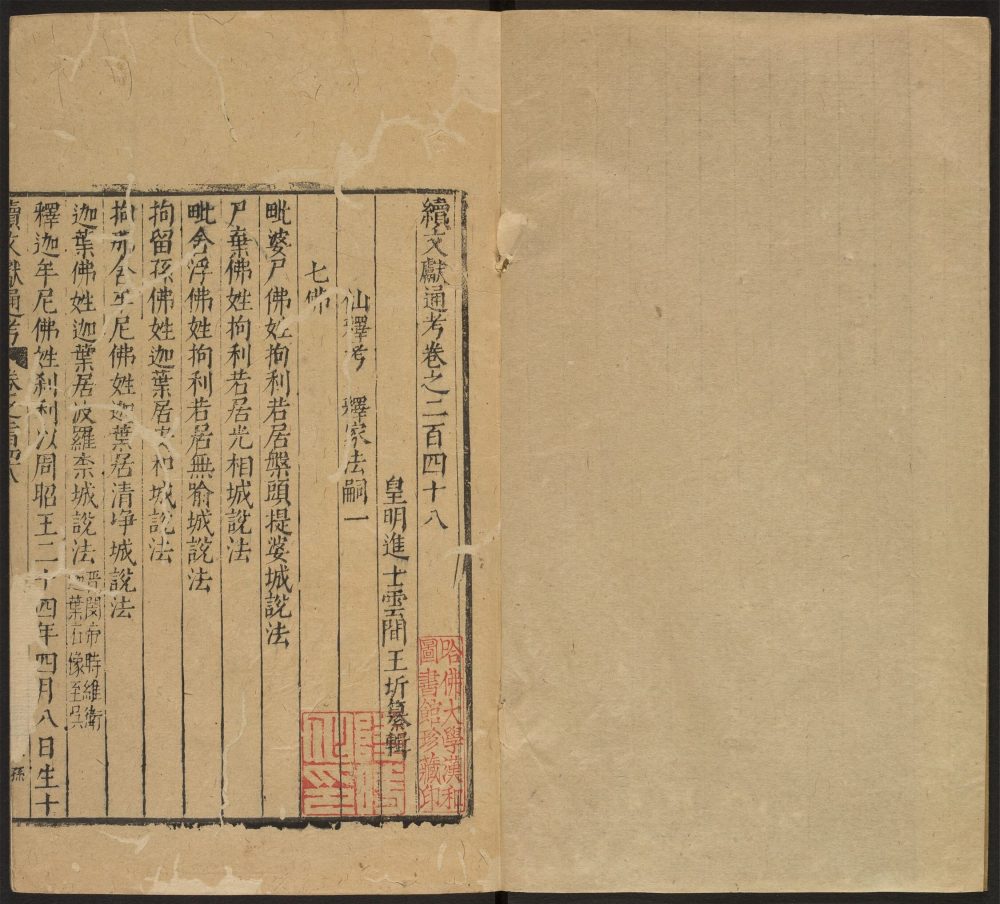 續文獻通考卷之二百四十八
皇明進士雲間王圻纂輯
仙釋考 釋家法嗣一
七佛
毗婆尸佛姓拘利若居盤頭提婆城說法
尸棄佛姓拘利若居光相城說法
毗舍浮佛姓拘利若居無喻城說法
拘留孫佛姓迦葉居安和城說法
拘那舍牟尼佛姓迦葉居清淨城說法
迦葉佛姓迦葉居波羅柰城說法 晋閔帝時維衛迦葉石像至吳
釋迦牟尼佛姓刹利以周昭王二十四年四月八日生十
續文獻通考 卷之二百四十八
孫
哈佛大學漢和
圖書館珍藏印